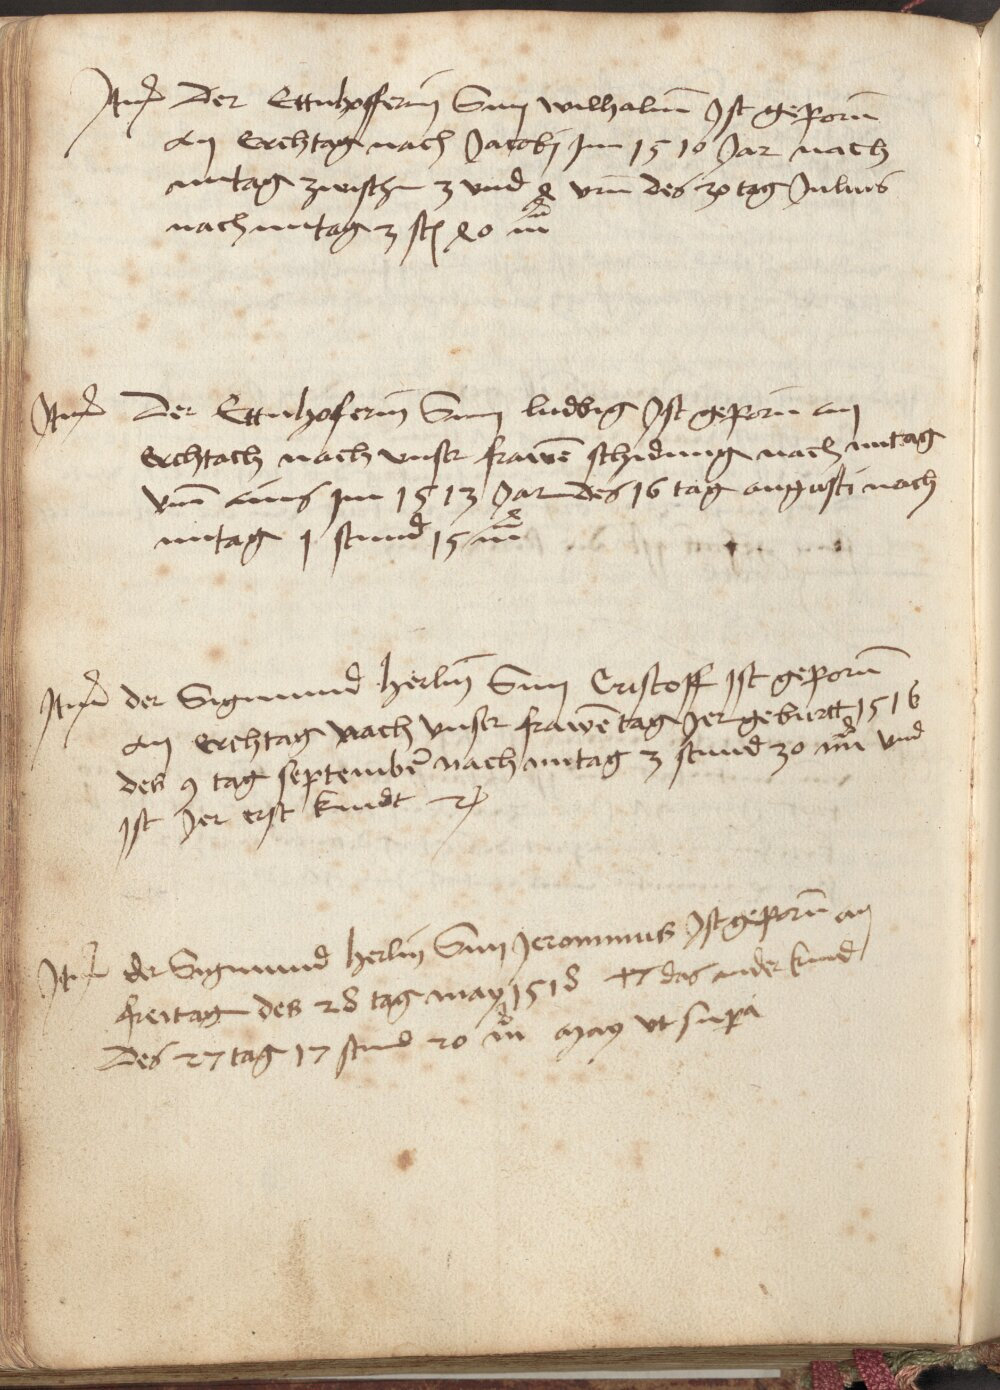 Item Der Ettnhofferin Sun wilhalm Ist geporn
an Erchtag nach Jacobj Im 1510 Jar nach
mitag zwischn 3 und 4 vrn des 30 tag Julius
nach mitag 3 st 40 m̄
Item Der Ettnhoferin Sun ludbig Ist geporn an
Erchtach nach vnser frawē schidung nach mitag
vm̄ ains Im 1513 Jar des 16 tag augusti nach
mitag 1 stund 15 m̄
Item der Sigmund herlin Sun Cristoff Ist geporn
an Erchtag Nach vnser frawē tag Jer geburtt 1516
des 9 tag september nach mitag 3 stund 30 m̄ vnd
Ist Jer erst kindt
Item der Sigmund herlin Sun Jeronimus Ist geporn an
freitag des 28 tag may 1518 das ander kind
Des 27 tag 17 stund 20 m̄ may vt supa